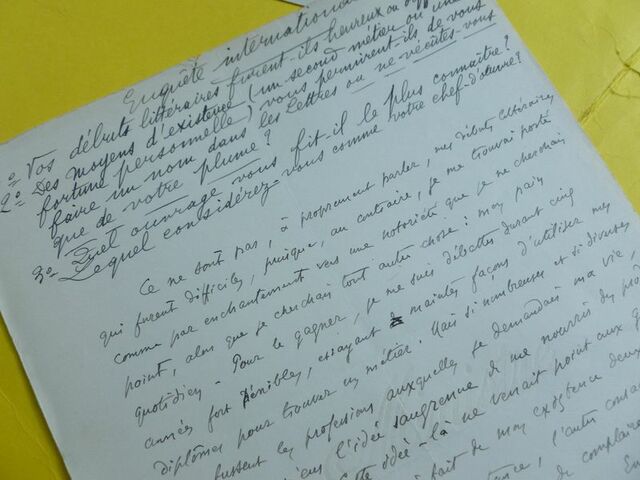 Enquête internationa
1º Vos débuts littéraires furent-ils heureux ou diff
2º Des moyens d'existence (un second métier ou une
fortune personnelle) vous permirent-ils de vous
faire un nom dans les Lettres ou ne vécûtes-vous
que de votre plume ?
3º Quel ouvrage vous fit-il le plus connaître ?
Lequel considérez-vous comme votre chef-d'œuvre ?
Ce ne sont pas, à proprement parler, mes débuts littéraires
qui furent difficiles, puisque, au contraire, je me trouvai porté
comme par enchantement vers une notoriété que je ne cherchais
point, alors que je cherchais tout autre chose : mon pain
quotidien - Pour le gagner, je me suis débattu durant cinq
années fort pénibles, essayant de maintes façons d'utiliser mes
diplômes pour trouver un métier. Mais si nombreuses et si diverses
fussent les professions auxquelles je demandais ma vie,
l'idée saugrenue de me nourrir du pro
idée-là ne venait point aux g
fait de mon existence deux
l'autre consa
de complaire